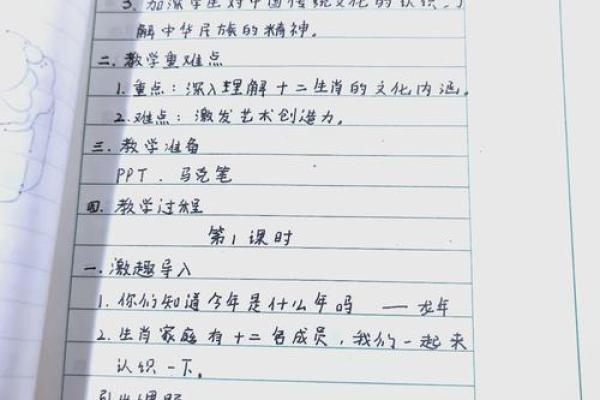 3. 加深学生对中国传统文化的认识，了
解中华民族的精神。
二. 教学重难点
1. 重点：深入理解十二生肖的文化内涵。
2. 难点：激发艺术创造力。
三. 教学准备
PPT . 马克笔
四. 教学过程
第1课时
一. 激趣导入
1. 你们知道今年是什么年吗 —— 龙年
2. 生肖家庭有十二名成员，我们一起来
认识一下。
引出课题